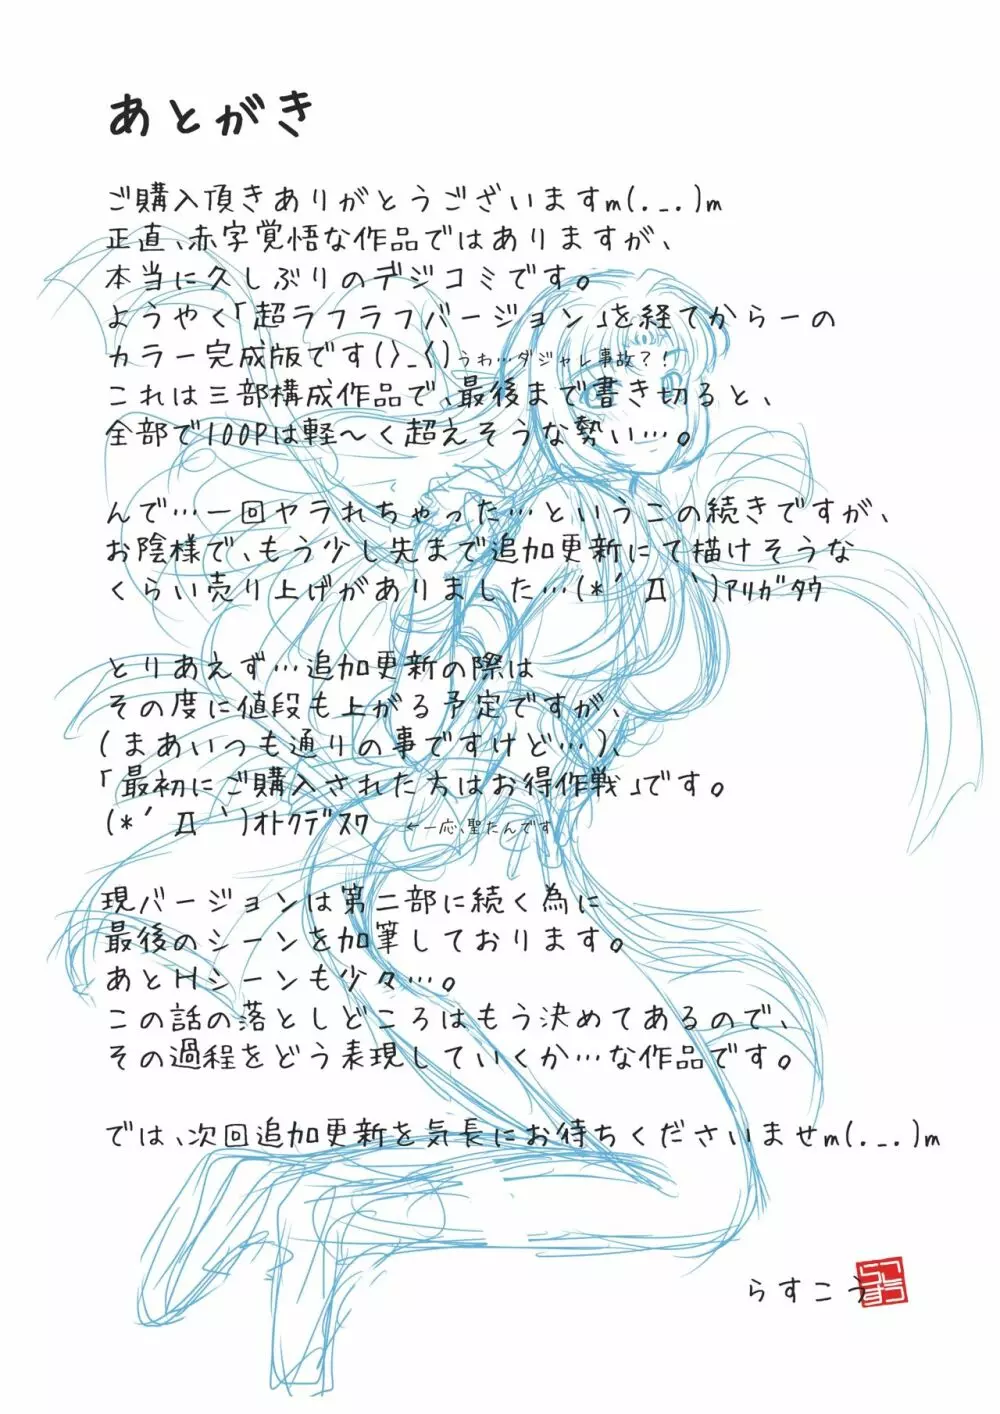 あとがき
ご購入頂きありがとうございますm(._.)m
正直、赤字覚悟な作品ではありますが、
本当に久しぶりのデジコミです。
ようやく「超ラフラフバージョン」を経てからーの
カラー完成版です(>_<)うわ…ダジャレ事故？！
これは三部構成作品で、最後まで書き切ると、
全部で100Pは軽〜く超えそうな勢い…。
んで…一回ヤラれちゃった…というこの続きですが、
お陰様で、もう少し先まで追加更新にて描けそうな
くらい売り上げがありました…(*´Д｀)ｱﾘｶﾞﾀｳ
とりあえず…追加更新の際は
その度に値段も上がる予定ですが、
(まあいつも通りの事ですけど…)、
「最初にご購入された方はお得作戦」です。
(*´Д｀)ｵﾄｸﾃﾞｽﾜ ←一応、聖たんです
現バージョンは第二部に続く為に
最後のシーンを加筆しております。
あとHシーンも少々…。
この話の落としどころはもう決めてあるので、
その過程をどう表現していくか…な作品です。
では、次回追加更新を気長にお待ちくださいませm(._.)m
らすこう